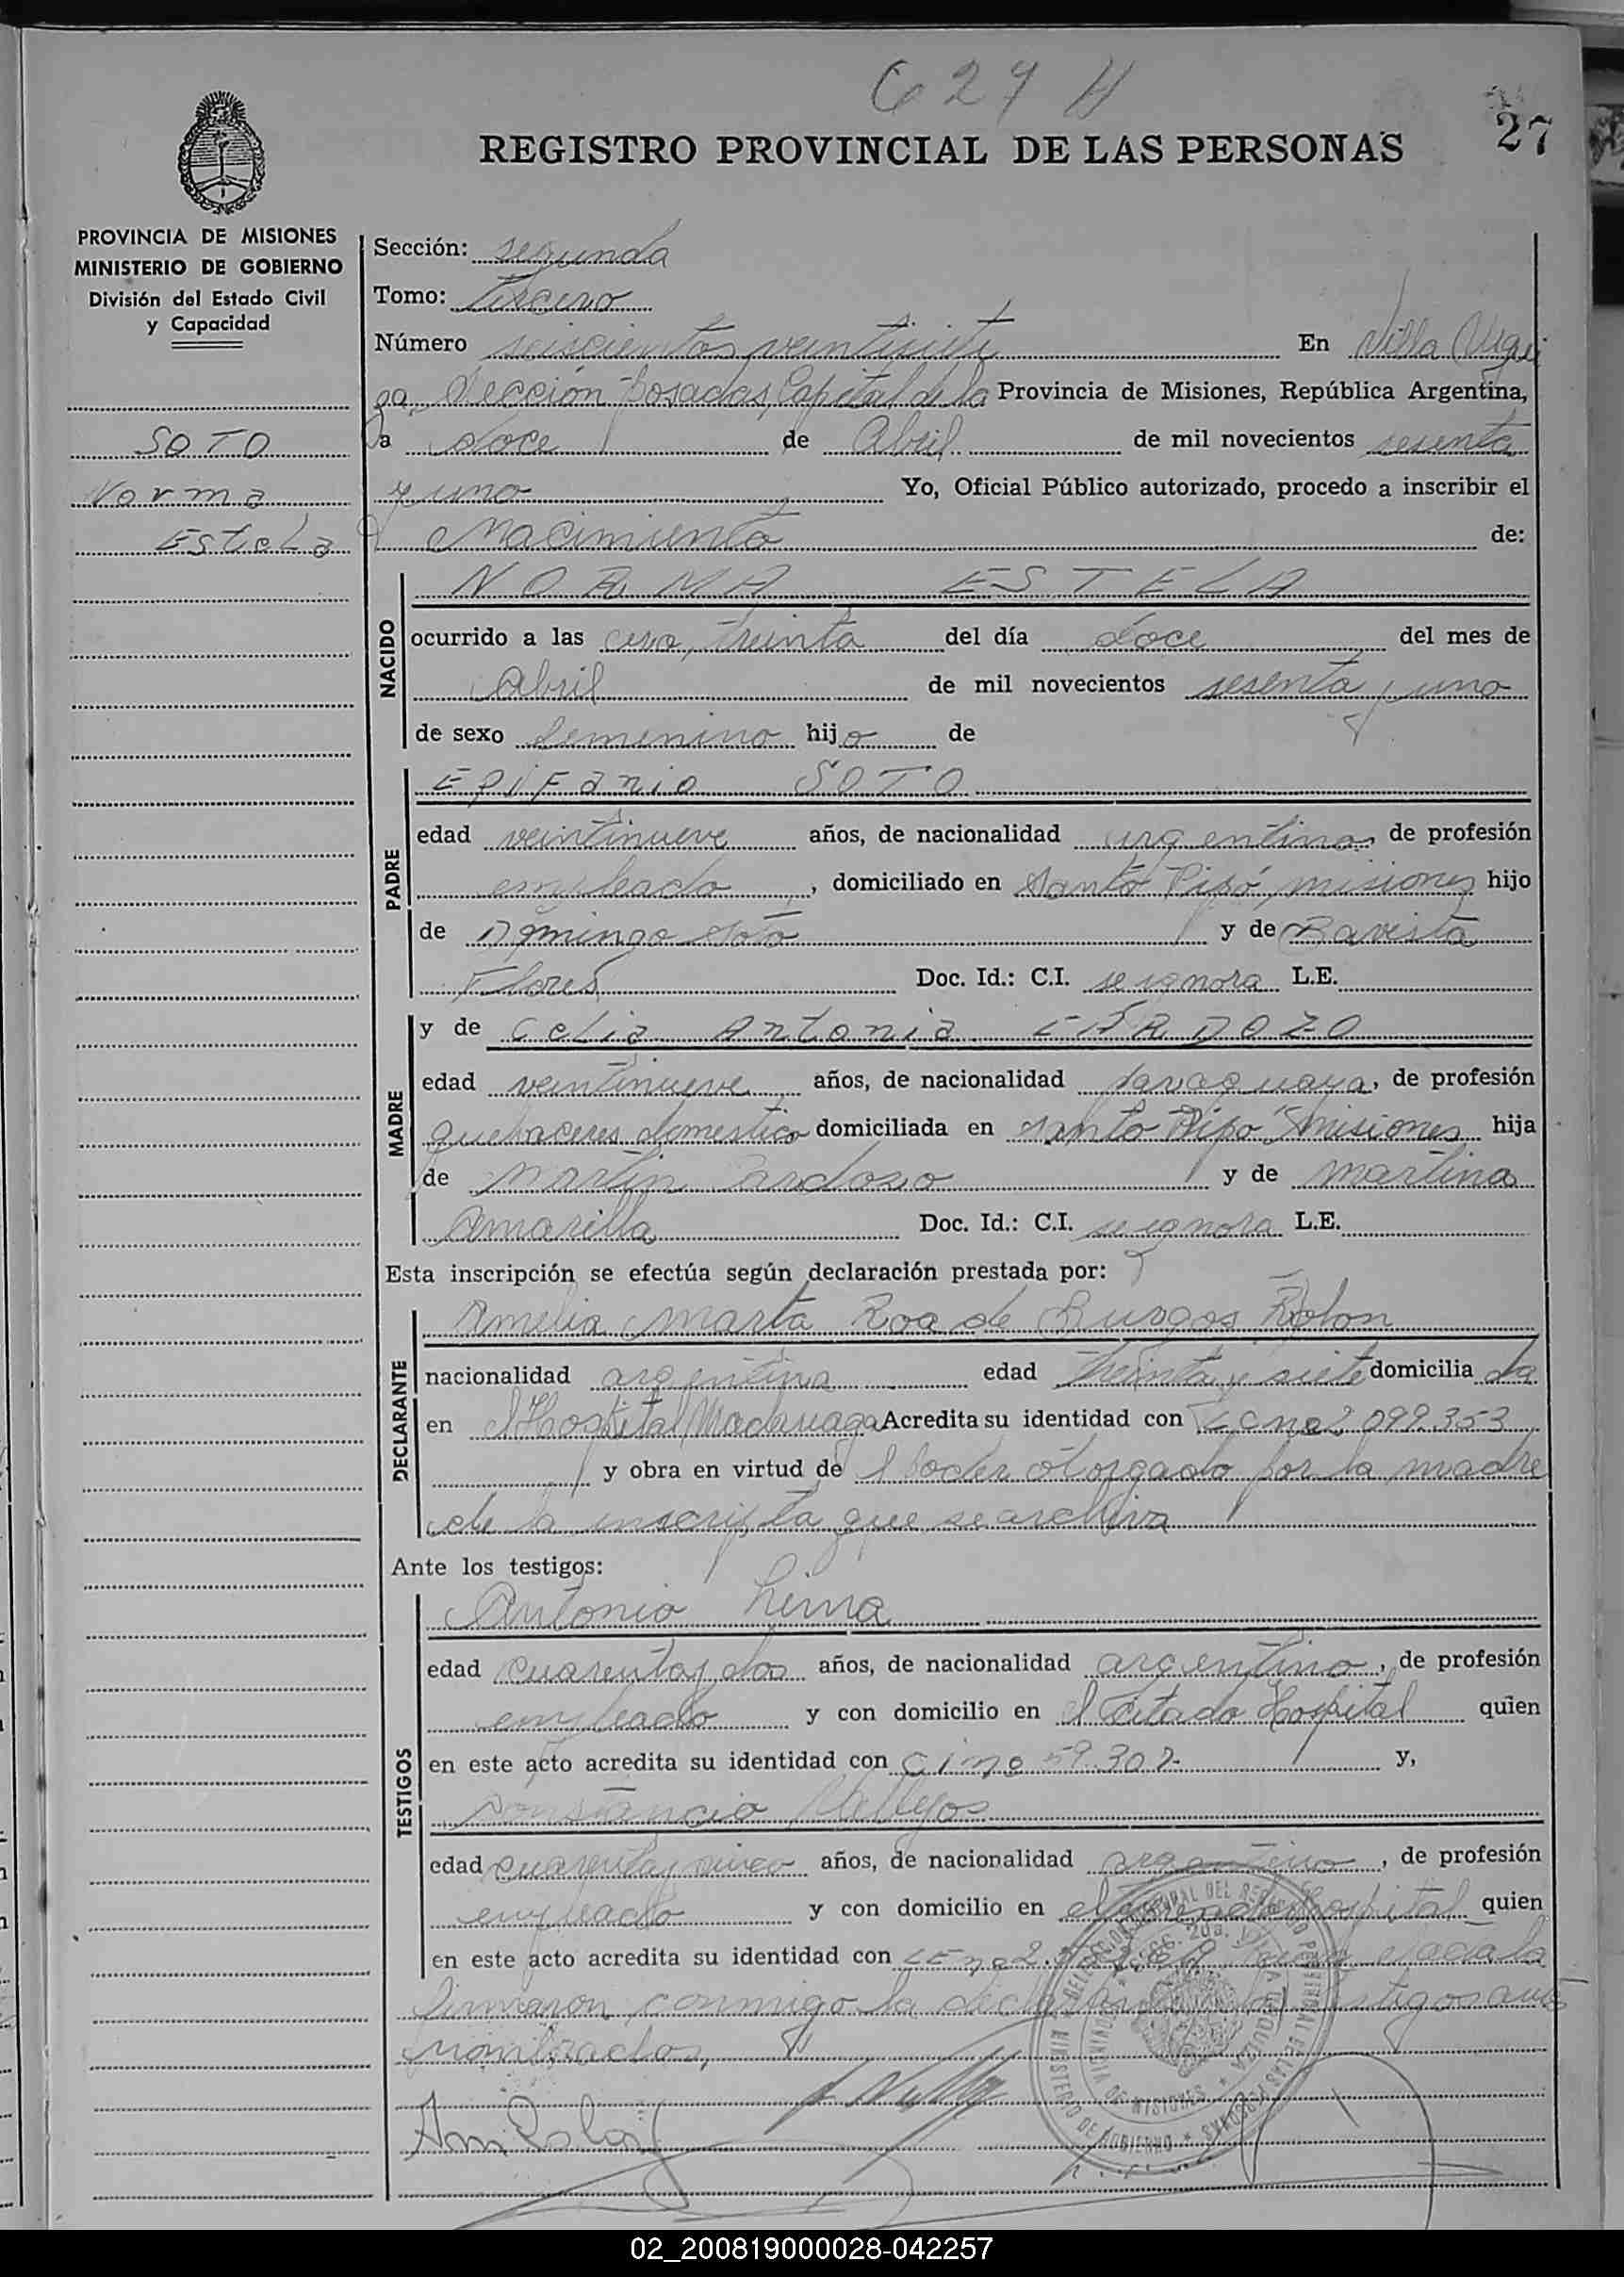 627 H
27
REGISTRO PROVINCIAL DE LAS PERSONAS
PROVINCIA DE MISIONES
MINISTERIO DE GOBIERNO
División del Estado Civil
y Capacidad
SOTO
Norma
Estela
Sección: segunda
Tomo: tercero
Número seiscientos veintisiete En Villa Urqui
za, Sección Posadas, Capital de la Provincia de Misiones, República Argentina,
a doce de Abril de mil novecientos sesenta
y uno Yo, Oficial Público autorizado, procedo a inscribir el
Nacimiento de:
NACIDO
NORMA ESTELA
ocurrido a las cero, treinta del día doce del mes de
Abril de mil novecientos sesenta y uno
de sexo femenino hijo de
PADRE
Epifanio SOTO
edad veintinueve años, de nacionalidad argentina, de profesión
empleado, domiciliado en Santo Pipó, misiones hijo
de Domingo Soto y de Bavista
Flores Doc. Id.: C.I. se ignora L.E.
MADRE
y de Celia Antonia CARDOZO
edad veintinueve años, de nacionalidad paraguaya, de profesión
quehaceres domestico domiciliada en Santo Pipó misiones hija
de Martin Cardozo y de Martina
Amarilla Doc. Id.: C.I. se ignora L.E.
Esta inscripción se efectúa según declaración prestada por:
DECLARANTE
Amelia Marta Roa de Burgos Rolon
nacionalidad argentina edad treinta y siete domicilia da
en el Hospital Madariaga Acredita su identidad con LC no 2.099.353
y obra en virtud de l Poder otorgado por la madre
de la inscripta que se archiva
Ante los testigos:
TESTIGOS
Antonio Lima
edad cuarenta y dos años, de nacionalidad argentino, de profesión
empleado y con domicilio en el citado Hospital quien
en este acto acredita su identidad con C i no 59.307- y,
Constancio Vallejos
edad cuarenta y cinco años, de nacionalidad argentino, de profesión
empleado y con domicilio en el Hospital quien
en este acto acredita su identidad con LE no 2. Leida el acta la
firmaron conmigo la declarante y los testigos antes
nombrados,
02_200819000028-042257